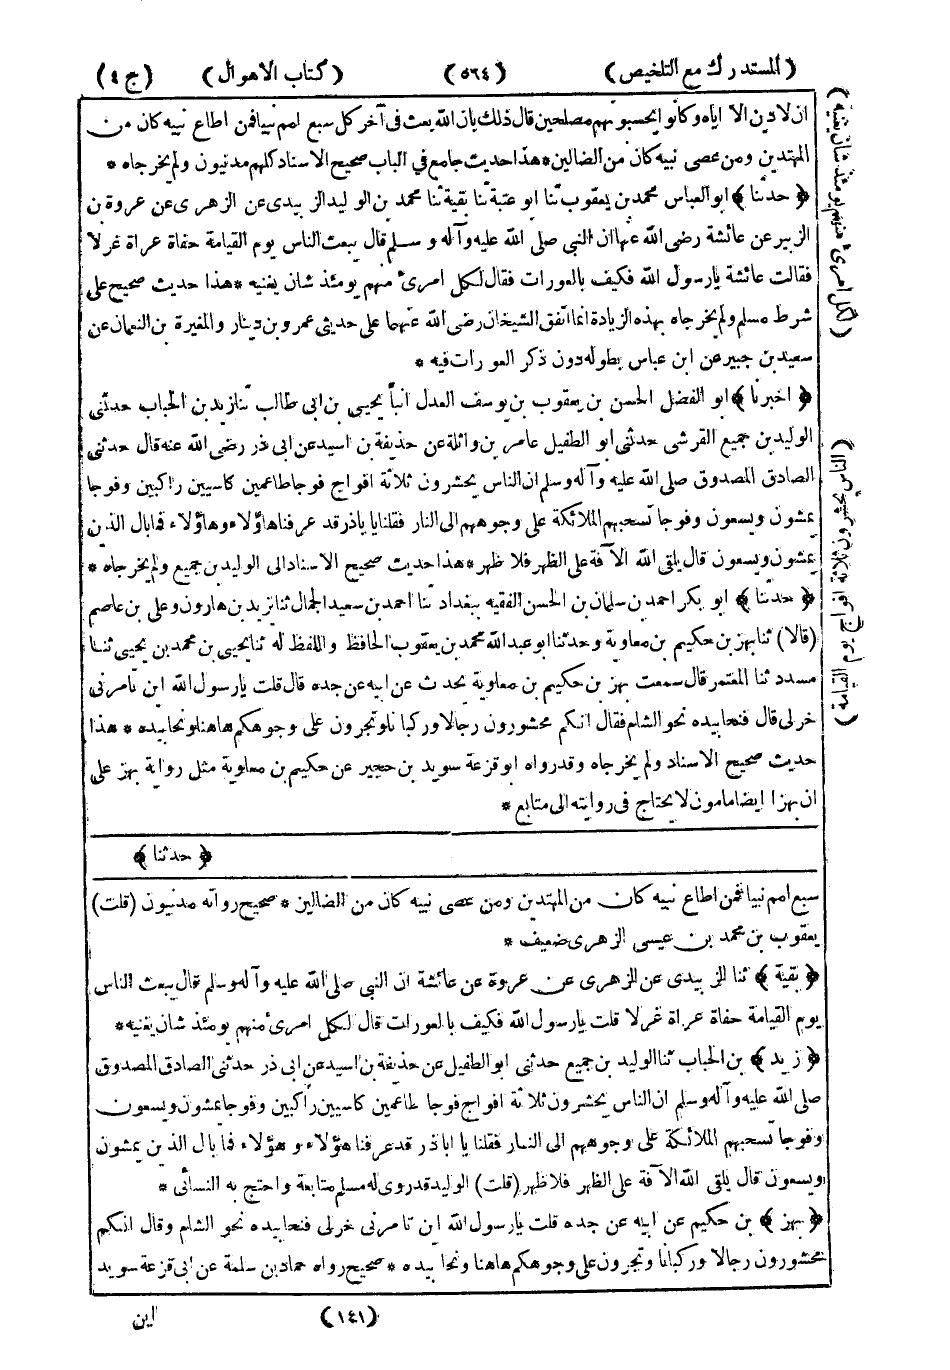 (المستدرك مع التلخيص) (٥٦٤) (كتاب الاهوال) (ج ٤)
ان لا دين الا اياه وكانوا يحسبونهم مصلحين قال ذلك بان الله بعث فى آخر كل سبع امم نبيا فمن اطاع نبيه كان من
المهتدين ومن عصى نبيه كان من الضالين * هذا حديث جامع في الباب صحيح الاسناد كلهم مدنيون ولم يخرجاه *
﴿ حدثنا ﴾ ابو العباس محمد بن يعقوب ثنا ابو عتبة ثنا بقية ثنا محمد بن الوليد الزبيدى عن الزهرى عن عروة بن
الزبير عن عائشة رضى الله عنها ان النبي صلى الله عليه وآله وسلم قال يبعث الناس يوم القيامة حفاة عراة غرلا
فقالت عائشة يا رسول الله فكيف بالعورات فقال لكل امرىء منهم يومئذ شان يغنيه * هذا حديث صحيح على
شرط مسلم ولم يخرجاه بهذه الزيادة انما اتفق الشيخان رضى الله عنهما على حديثى عمرو بن دينار والمغيرة بن النعمان عن
سعيد بن جبير عن ابن عباس بطوله دون ذكر العورات فيه *
﴿ اخبرنا ﴾ ابو الفضل الحسن بن يعقوب بن يوسف العدل انبأ يحيى بن ابى طالب ثنا زيد بن الحباب حدثنى
الوليد بن جميع القرشى حدثنى ابو الطفيل عامر بن واثلة عن حذيفة بن اسيد عن ابى ذر رضى الله عنه قال حدثنى
الصادق المصدوق صلى الله عليه وآله وسلم ان الناس يحشرون ثلاثة افواج فوجا طاعمين كاسيين راكبين وفوجا
يمشون ويسعون وفوجا تسحبهم الملائكة على وجوههم الى النار فقلنا يا باذر قد عرفنا هاؤلاء وهاؤلاء فما بال الذين
يمشون ويسعون قال يلقى الله الآفة على الظهر فلا ظهر * هذا حديث صحيح الاسناد الى الوليد بن جميع ولم يخرجاه *
﴿ حدثنا ﴾ ابو بكر احمد بن سلمان بن الحسن الفقيه ببغداد ثنا احمد بن سعيد الجمال ثنا يزيد بن هارون وعلى بن عاصم
(قالا) ثنا بهز بن حكيم بن معاوية وحدثنا ابو عبد الله محمد بن يعقوب الحافظ واللفظ له ثنا يحيى بن محمد بن يحيى ثنا
مسدد ثنا المعتمر قال سمعت بهز بن حكيم بن معاوية يحدث عن ابيه عن جده قال قلت يا رسول الله اين تامرنى
خر لى قال فنحا بيده نحو الشام فقال انكم محشورون رجالا وركبانا وتجرون على وجوهكم هاهنا ونحا بيده * هذا
حديث صحيح الاسناد ولم يخرجاه وقد رواه ابو قزعة سويد بن حجير عن حكيم بن معاوية مثل رواية بهز على
ان بهزا ايضا مامون لا يحتاج فى روايته الى متابع *
﴿ حدثنا ﴾
سبع امم نبيا فمن اطاع نبيه كان من المهتدين ومن عصى نبيه كان من الضالين * صحيح رواته مدنيون (قلت)
يعقوب بن محمد بن عيسى الزهرى ضعيف *
﴿ بقية ﴾ ثنا الزبيدى عن الزهرى عن عروة عن عائشة ان النبي صلى الله عليه وآله وسلم قال يبعث الناس
يوم القيامة حفاة عراة غرلا قلت يا رسول الله فكيف بالعورات قال لكل امرىء منهم يومئذ شان يغنيه *
﴿ زيد ﴾ بن الحباب ثنا الوليد بن جميع حدثنى ابو الطفيل عن حذيفة بن اسيد عن ابى ذر حدثنى الصادق المصدوق
صلى الله عليه وآله وسلم ان الناس يحشرون ثلاثة افواج فوجا طاعمين كاسيين راكبين وفوجا يمشون ويسعون
وفوجا تسحبهم الملائكة على وجوههم الى النار فقلنا يا اباذر قد عرفنا هؤلاء وهؤلاء فما بال الذين يمشون
ويسعون قال يلقى الله الآفة على الظهر فلا ظهر (قلت) الوليد قد روى له مسلم متابعة واحتج به النسائى *
﴿ بهز ﴾ بن حكيم عن ابيه عن جده قلت يا رسول الله اين تامرنى خر لى فنحا بيده نحو الشام وقال انكم
محشورون رجالا وركبانا وتجرون على وجوهكم هاهنا ونحا بيده * صحيح رواه حماد بن سلمة عن ابى قزعة سويد
(١٤١) ابن
(لكل امرىء منهم يومئذ شان يغنيه)